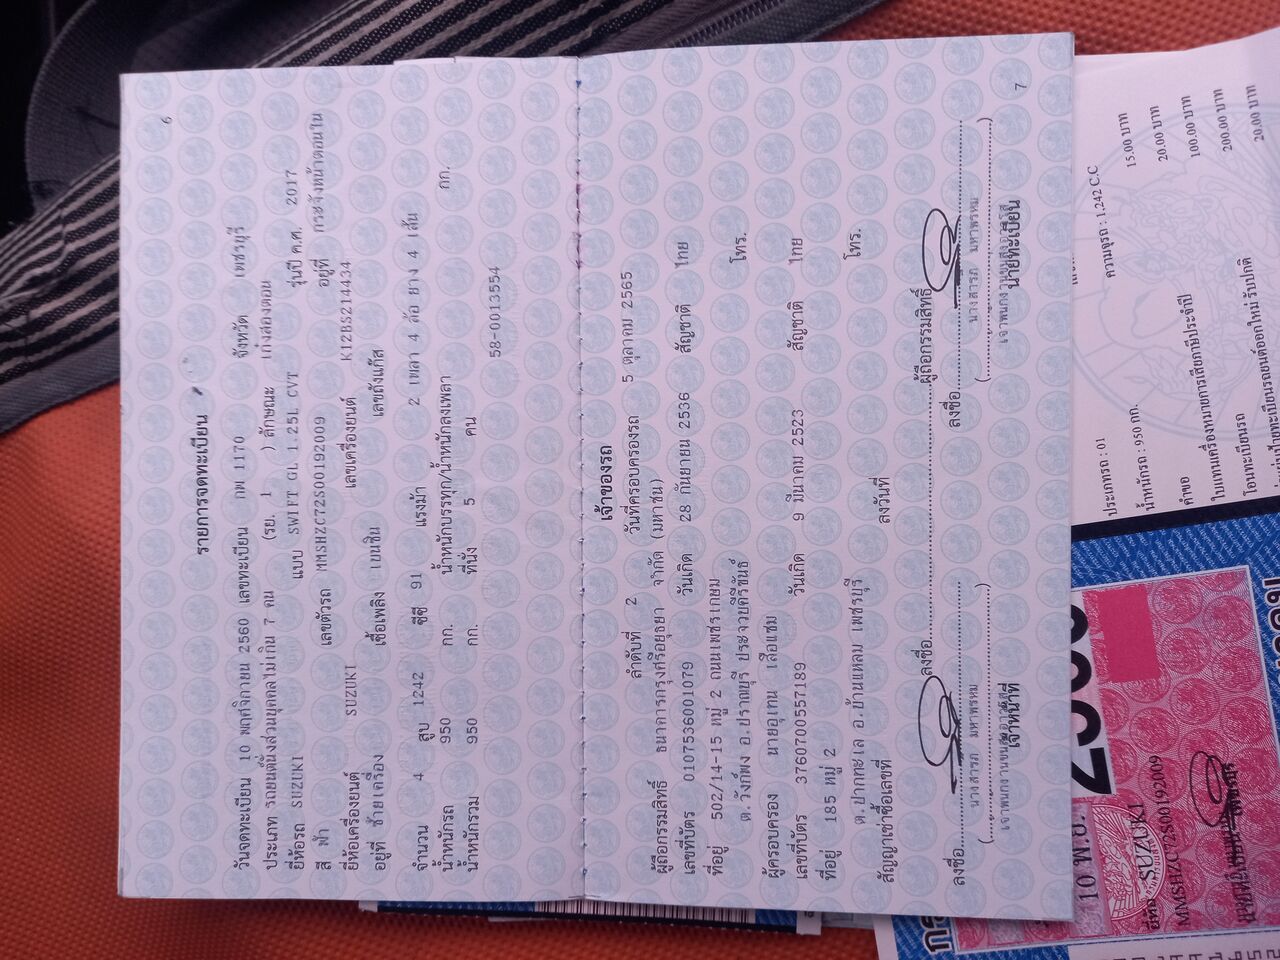 6
รายการจดทะเบียน
วันจดทะเบียน 10 พฤศจิกายน 2560 เลขทะเบียน กพ 1170 จังหวัด เพชรบุรี
ประเภท รถยนต์นั่งส่วนบุคคลไม่เกิน 7 คน (รย. 1 ) ลักษณะ เก๋งสองตอน
ยี่ห้อรถ SUZUKI แบบ SWIFT GL 1.25L CVT รุ่นปี ค.ศ. 2017
สี ฟ้า เลขตัวรถ MMSHZC72S00192009 อยู่ที่ กระจังหน้าตอนใน
ยี่ห้อเครื่องยนต์ SUZUKI เลขเครื่องยนต์ K12BS214434
อยู่ที่ ซ้ายเครื่อง เชื้อเพลิง เบนซิน เลขถังแก๊ส
จำนวน 4 สูบ 1242 ซีซี 91 แรงม้า 2 เพลา 4 ล้อ ยาง 4 เส้น
น้ำหนักรถ 950 กก. น้ำหนักบรรทุก/น้ำหนักลงเพลา กก.
น้ำหนักรวม 950 กก. ที่นั่ง 5 คน
58-0013554
เจ้าของรถ
ลำดับที่ 2 วันที่ครอบครองรถ 5 ตุลาคม 2565
ผู้ถือกรรมสิทธิ์ ธนาคารกรุงศรีอยุธยา จำกัด (มหาชน)
เลขที่บัตร 0107536001079 วันเกิด 28 กันยายน 2536 สัญชาติ ไทย
ที่อยู่ 502/14-15 หมู่ 2 ถนนเพชรเกษม
ต.วังก์พง อ.ปราณบุรี ประจวบคีรีขันธ์ โทร.
ผู้ครอบครอง นายอุเทน เสือแซม
เลขที่บัตร 3760700557189 วันเกิด 9 มีนาคม 2523 สัญชาติ ไทย
ที่อยู่ 185 หมู่ 2
ต.ปากทะเล อ.บ้านแหลม เพชรบุรี โทร.
สัญญาเช่าซื้อเลขที่ ลงวันที่
ลงชื่อ ผู้ถือกรรมสิทธิ์
ลงชื่อ ลงชื่อ
นางสารภ มหาพรหม นางสารภ มหาพรหม
เจ้าหน้าที่ นายทะเบียน
7
ประเภทรถ : 01
น้ำหนักรถ : 950 กก. ความจุรถ : 1,242 C.C
คำขอ 15.00 บาท
ใบแทนเครื่องหมายการเสียภาษีประจำปี 20.00 บาท
โอนทะเบียนรถ 100.00 บาท
200.00 บาท
20.00 บาท
10 พ.ย.
SUZUKI
MMSHZC72S00192009